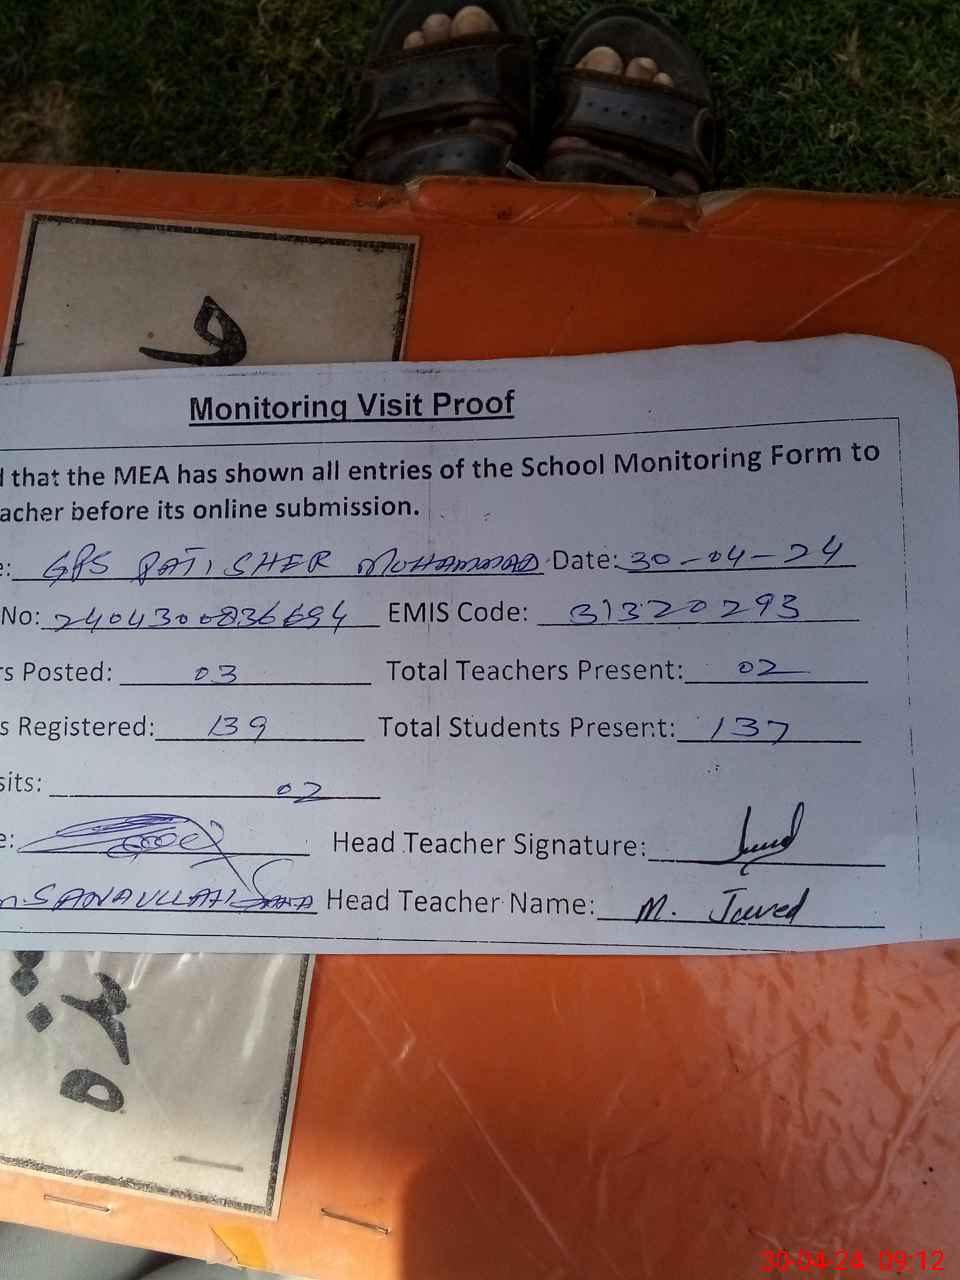 و
Monitoring Visit Proof
that the MEA has shown all entries of the School Monitoring Form to
acher before its online submission.
e: GPS BATI SHER MUHAMMAD Date: 30-04-24
No: 2404300836694 EMIS Code: 31320293
rs Posted: 03 Total Teachers Present: 02
s Registered: 139 Total Students Present: 137
sits: 02
e: Head Teacher Signature:
M.SANAULLAH Head Teacher Name: M. Javed
30-04-24 09:12